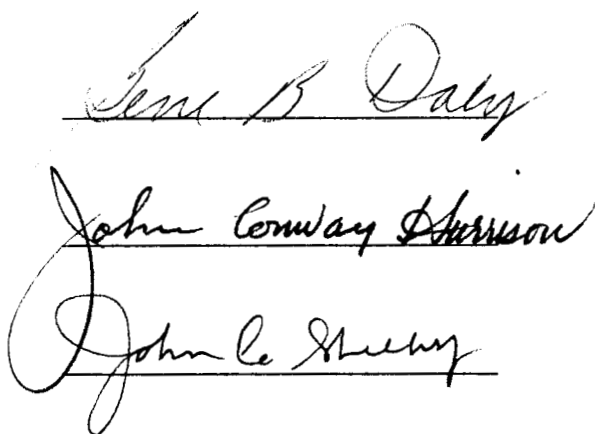 Gene B Daly
John Conway Harrison
John C. Sheehy